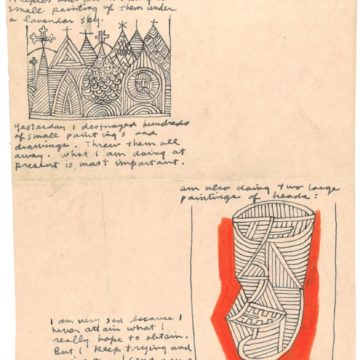 small painting of them under
a lavendar sky.
Yesterday I destroyed hundreds
of small paintings and
drawings. Threw them all
away. What I am doing at
present is most important.
am also doing two large
paintings of heads:
I am very sad because I
never attain what I
really hope to obtain.
But I keep trying and